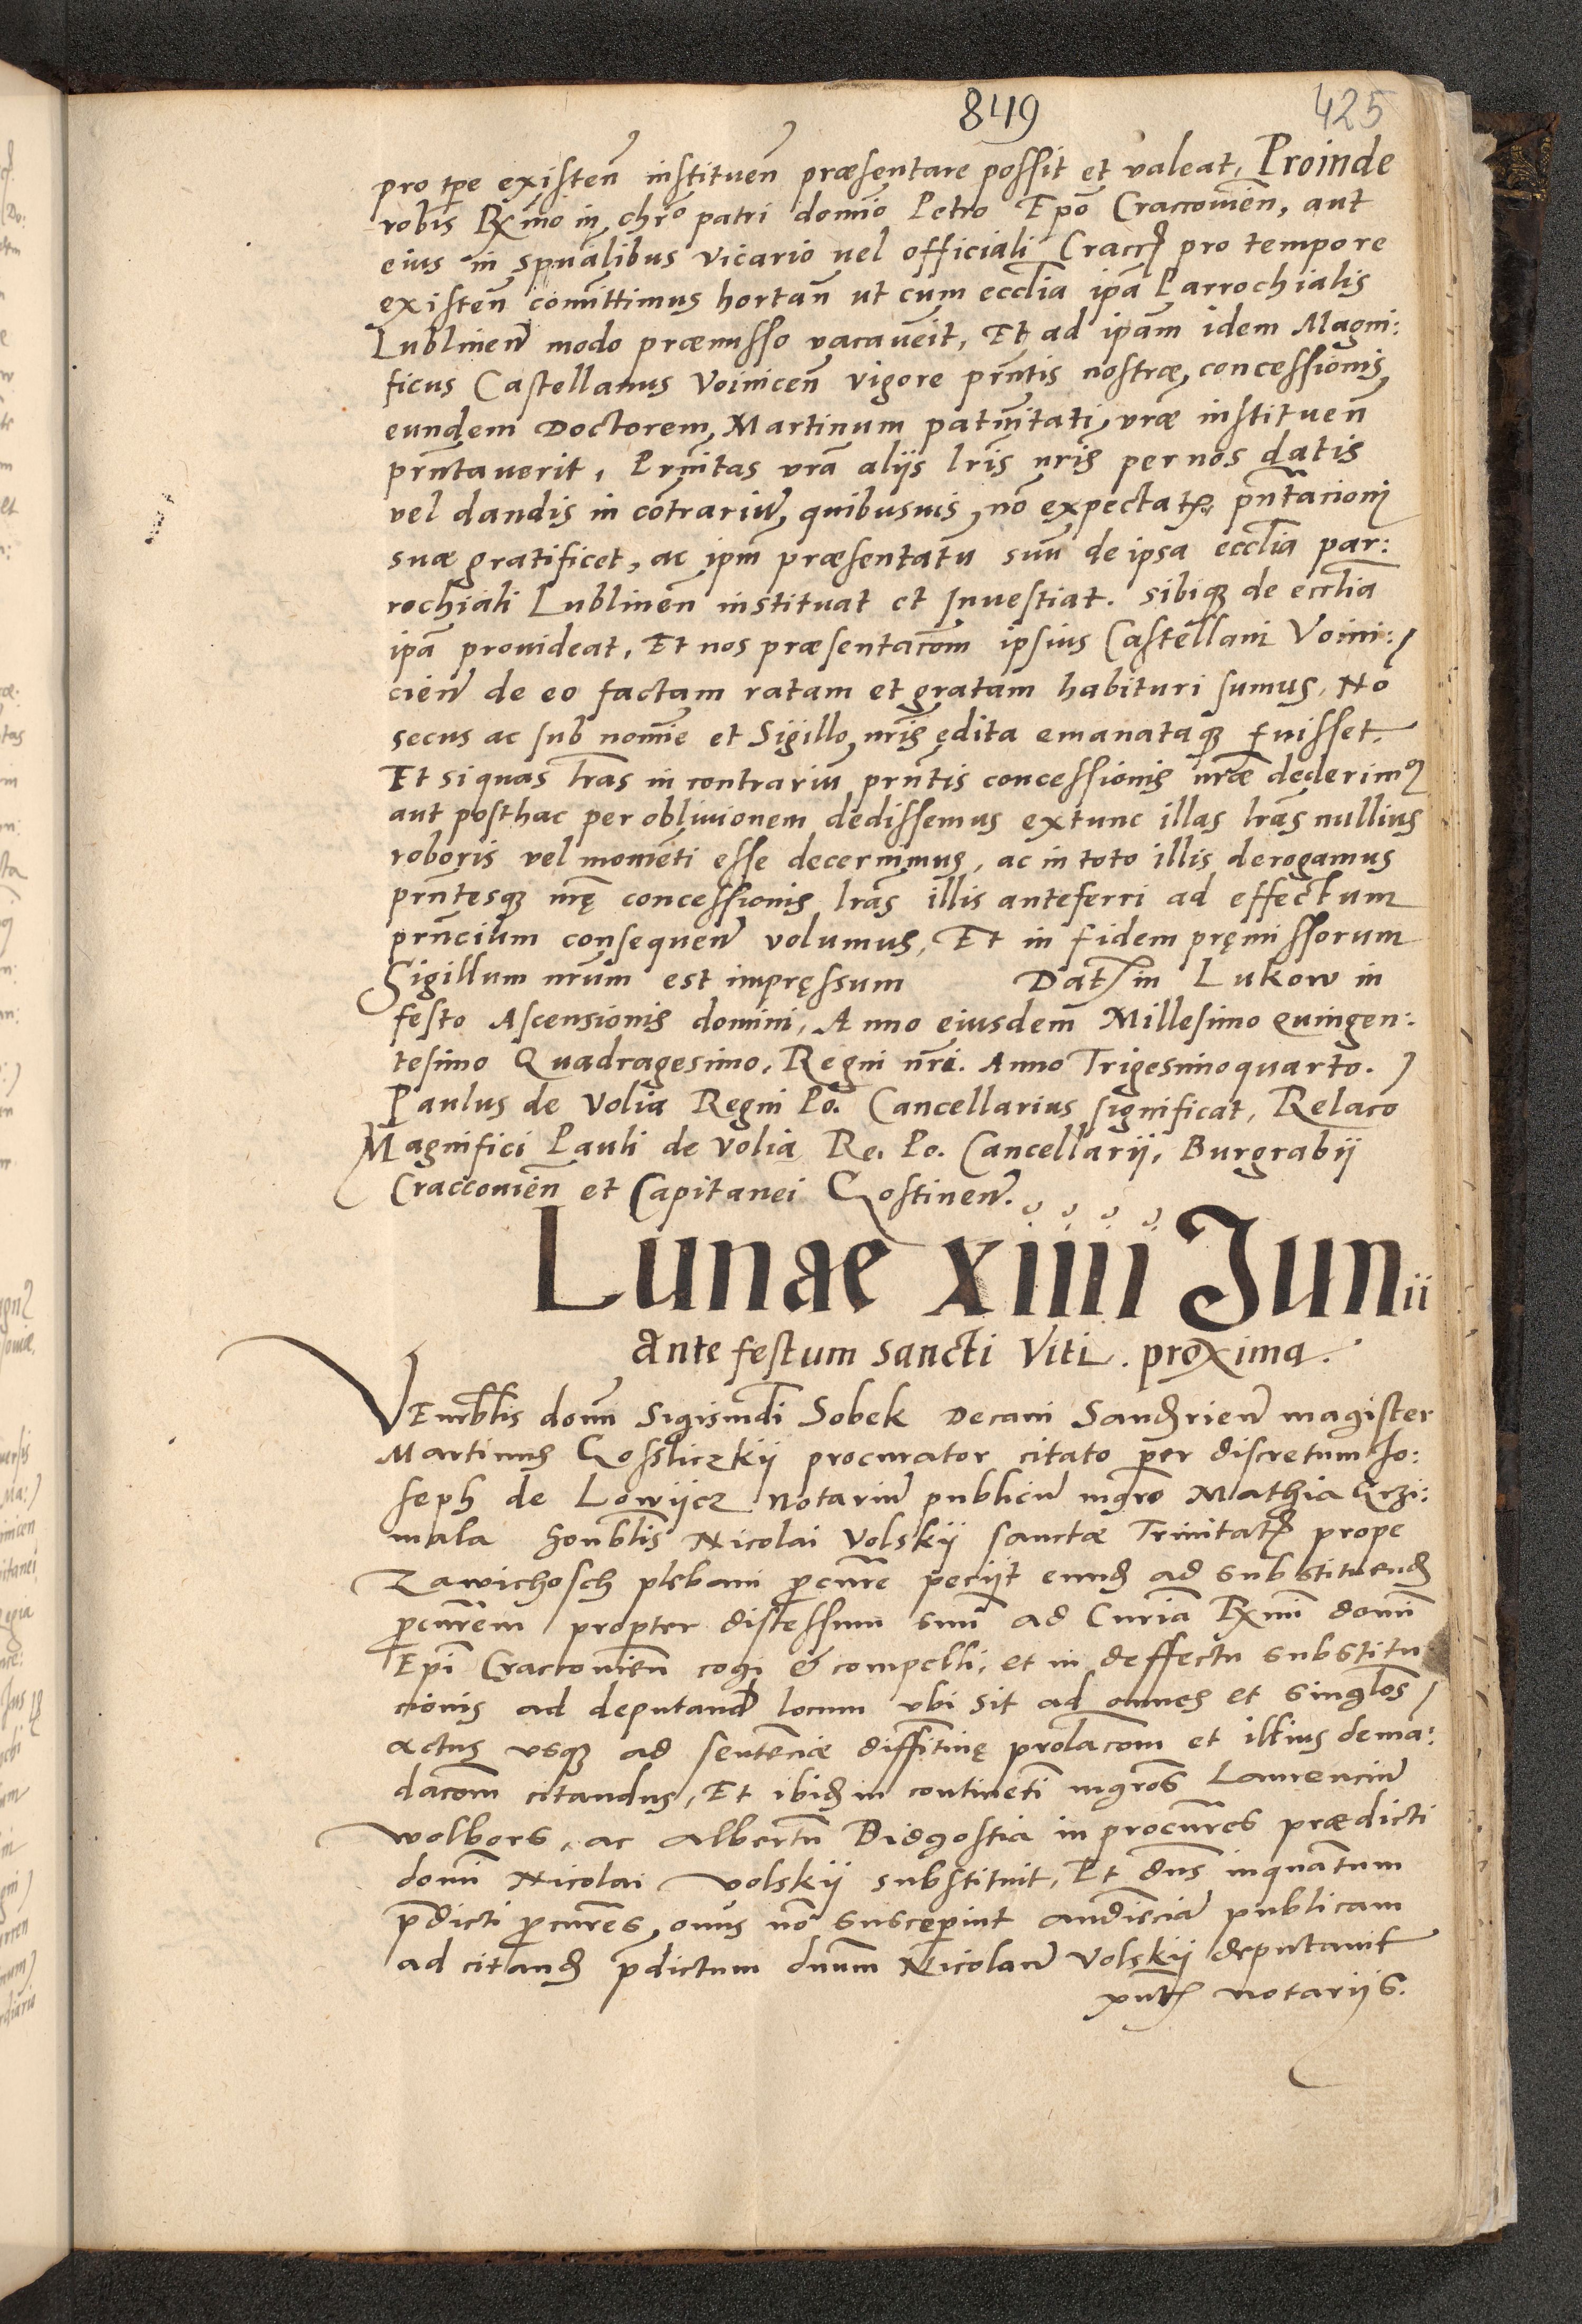 849 425
pro tpe existen̄ instituen̄ præsentare possit et valeat, Proinde
vobis Rx̄mo in chr̄o patri domīo Petro Epō Craccovien̄, aut
eius in spūalibus vicario vel officiali Cracc̄ pro tempore
existen̄ comittimus hortan̄ ut cum eccl̄ia ip̄a Parrochialis
Lublinen̄ modo præmisso vacaverit, Et ad ip̄am idem Magni:
ficus Castellanus Voinicen̄ vigore pn̄tis nostræ, concessionis
eundem Doctorem, Martinum patn̄itati vræ instituen̄
prn̄taverit, Prn̄itas vr̄a aliis lr̄is nr̄is per nos datis
vel dandis in cōtrariū, quibusuis, nō expectatꝭ, pn̄tacioni
suæ gratificet, ac ipm̄ præsentatū suū de ipsa eccl̄ia par:
rochiali Lublinen̄ instituat et Inuestiat. sibiqꝫ de eccl̄ia
ip̄a prouideat, Et nos præsentacōm ipsius Castellani Voini:
cien̄ de eo factam ratam et gratam habituri sumus, Nō
secus ac sub nomīe et Sigillo, nr̄is ędita emanataqꝫ fuisset.
Et si quas lr̄as in contrariū prn̄tis concessionis nr̄æ dederimꝰ
aut posthac per obliuionem dedissemus extunc illas lr̄as nullius
roboris vel momēti esse decernimus, ac in toto illis derogamus
prn̄tesqꝫ nr̄ę concessionis lr̄as illis anteferri ad effectum
prn̄cium consequen̄ volumus, Et in fidem pręmissorum
Sigillum nr̄um est impręssum Datꝭ in Lukow in
festo Ascensionis domini, Anno eiusdem Millesimo Quingen:
tesimo Quadragesimo, Regni nr̄i. Anno Trigesimoquarto.
Paulus de Volia Regni Po. Cancellarius significat, Relaco
Magnifici Pauli de Volia Re. Po. Cancellarii, Burgrabii
Craccovien̄ et Capitanei Gostinen̄.
Lunae xiiii Junii
Ante festum Sancti Viti. proxima.
VEnerbl̄is domī Sigismūdi Sobek Decani Sandꝭrien̄ magister
Martinus Gossliczkij procurator citato per discretum Jo:
seph de Lowijcz notariū publicū mgr̄o Mathia Grzi:
mala Honbl̄is Nicolai Volskij sanctæ Trinitatꝭ prope
Zawichosch plebani procur̄e peciit eundꝭ ad substituendꝭ
procur̄em propter discessum suū ad Curiā Rx̄mi domī
Epī Craccovien̄ cogi & compelli, et in deffectu substitu
cionis ad deputandꝭ locum ubi sit ad omnes et singlōs
actus vsqꝫ ad sentenciæ diffīitiuę prolacōm et illius dema:
dacōm citandus, Et ibidꝭ in continēti mgrōs Laurenciū
Wolbors, ac Albertū Bidgostia in procur̄es prædicti
domī Nicolai Volskij substituit, Et dn̄s inquantum
p̄dicti procur̄es, onus nō susceperint audīciā publicam
ad citandꝭ p̄dictum dn̄um Nicolaū Volskij deputauit
pn̄tꝭ notariis.